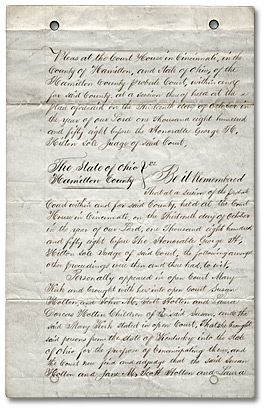 Pleas at the Court House in Cincinnati, in the
County of Hamilton, and State of Ohio, of the
Hamilton County Probate Court, within and
for said County, at a session thereof held at the
place aforesaid on the Thirteenth day of October in
the year of our Lord one thousand eight hundred
and fifty eight before the Honorable George H.
Hilton Sole Judge of said Court,
The State of Ohio
Hamilton County } ss
Be it Remembered
that at a session of the probate
Court within and for said County, held at the Court
House in Cincinnati, on the Thirteenth day of October
in the year of our Lord, one thousand eight hundred
and fifty eight before The Honorable George H.
Hilton sole Judge of said Court, the following amongst
other proceedings were then and there had, to wit,
Personally appeared in open Court Mary
Kirk and brought with her into open Court Susan
Holton, and John M. Scott Holton and Laura
Holton Children of the said Susan, and
the said Mary Kirk stated in open Court, that she brought
said persons from the State of Kentucky into the State
of Ohio for the purpose of Emancipating them, and
the Court now find and adjudge that the said Susan
Holton and M. Scott Holton and Laura